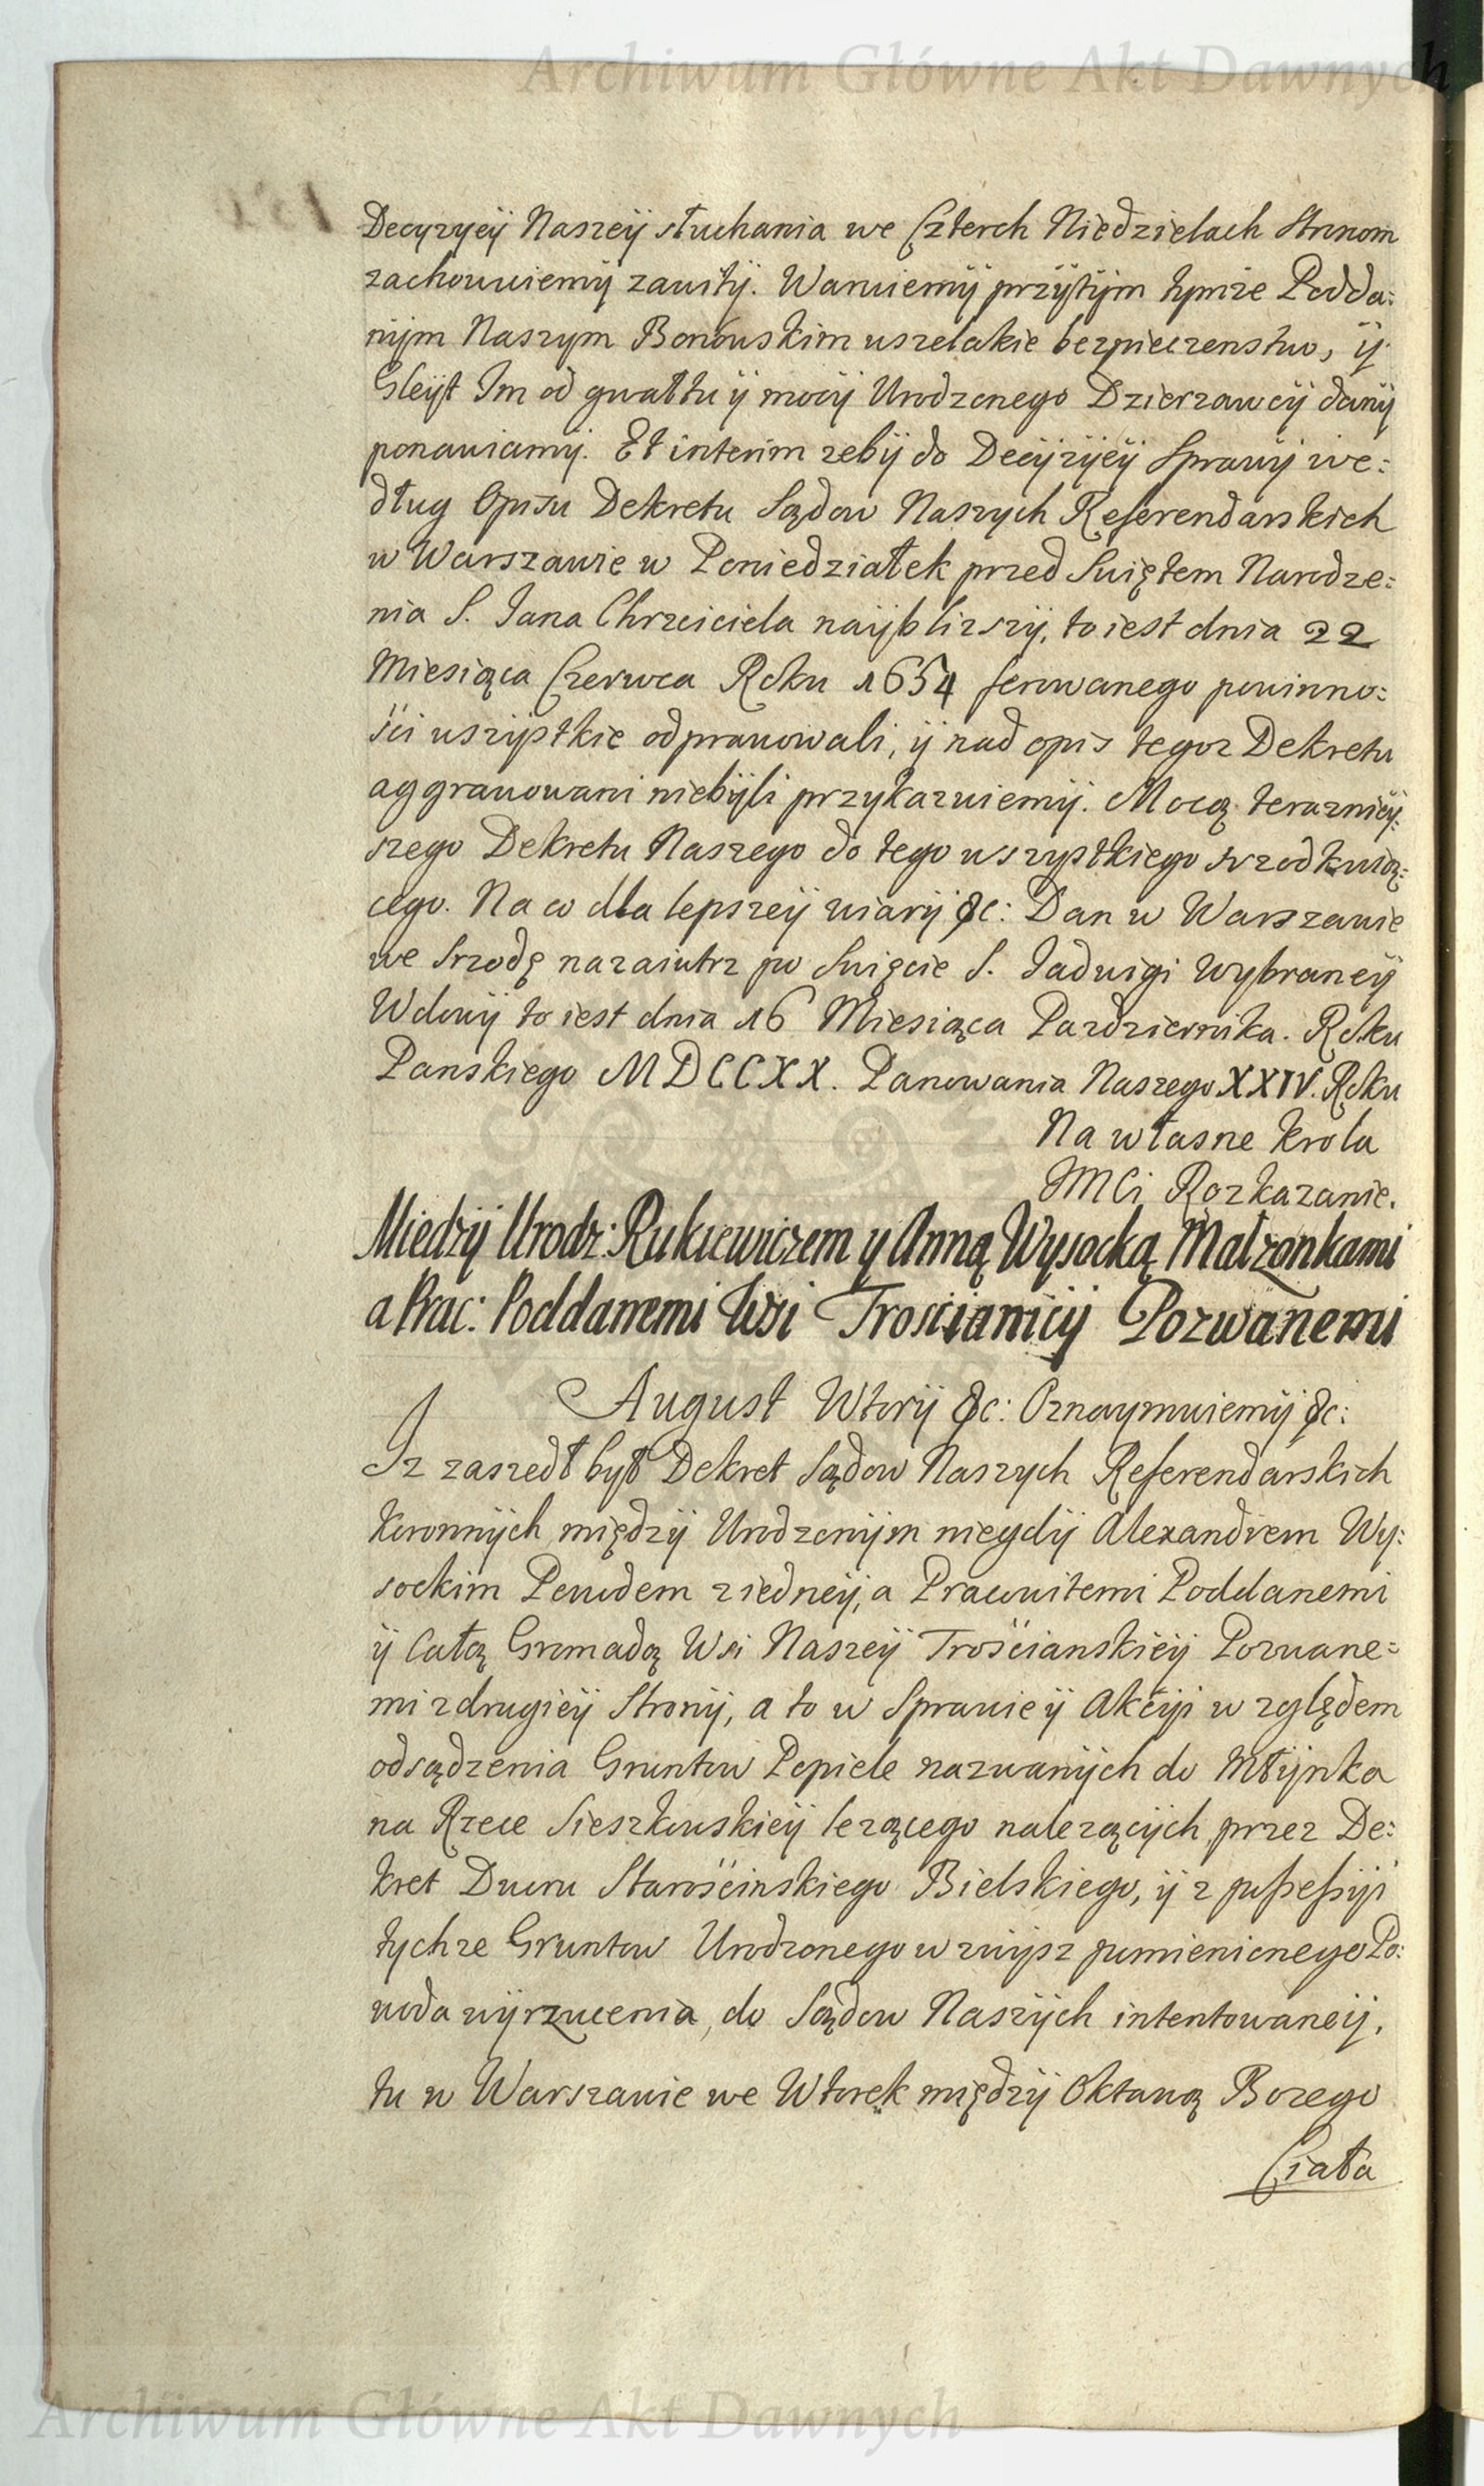 Archiwum Główne Akt Dawnych
Decyzyey Naszey słuchania we Czterch Niedzielach Stronom
zachowuiemy zawity. Waruiemy przytym tymze Podda:
nym Naszym Bonowskim wszelakie bezpieczenstwo, y
Gleyt Im od gwałtu y mocy Urodzonego Dzierzawcy dany
ponawiamy. Et interim zeby do Decyzyey Sprawy we:
dług Opisu Dekretu Sądow Naszych Referendarskich
w Warszawie w Poniedziałek przed Swiętem Narodze:
nia S. Jana Chrzciciela nayblizszy, to iest dnia 22
Miesiąca Czerwca Roku 1654 ferowanego powinno:
ści wszystkie odprawowali, y nad opis tegoz Dekretu
aggrawowani niebyli przykazuiemy. Mocą teraznièy:
szego Dekretu Naszego do tego wszystkiego srzodkuią:
cego. Na co dla lepszey wiary &c: Dan w Warszawie
we Srzodę nazaiutrz po Swięcie S. Jadwigi Wybraney
Wdowy to iest dnia 16 Miesiąca Pazdziernika. Roku
Panskiego MDCCXX. Panowania Naszego XXIV. Roku
Na własne Krola
JMCi Rozkazanie.
Miedzy Urodz: Rukiewiczem y Anną Wysocką Małzonkami
a Prac: Poddanemi Wsi Trościanicy Pozwanemi
August Wtory &c: Oznaymuiemy &c:
Iz zaszedł był Dekret Sądow Naszych Referendarskich
Koronnych między Urodzonym niegdy Alexandrem Wy:
sockim Powodem z iedney, a Pracowitemi Poddanemi
y Całą Gromadą Wsi Naszey Trościanskiey Pozwane:
mi z drugiey Strony, a to w Sprawie y Akcyi względem
odsądzenia Gruntow Popiele nazwanych do Młynka
na Rzece Sieszkowskiey lezącego nalezących przez De:
kret Dworu Starościnskiego Bielskiego, y z possessyi
tychze Gruntow Urodzonego wzwysz pomienionego Po:
woda wyrzucenia, do Sądow Naszych intentowaney,
tu w Warszawie we Wtorek między Oktawą Bozego
Ciała
Archiwum Główne Akt Dawnych